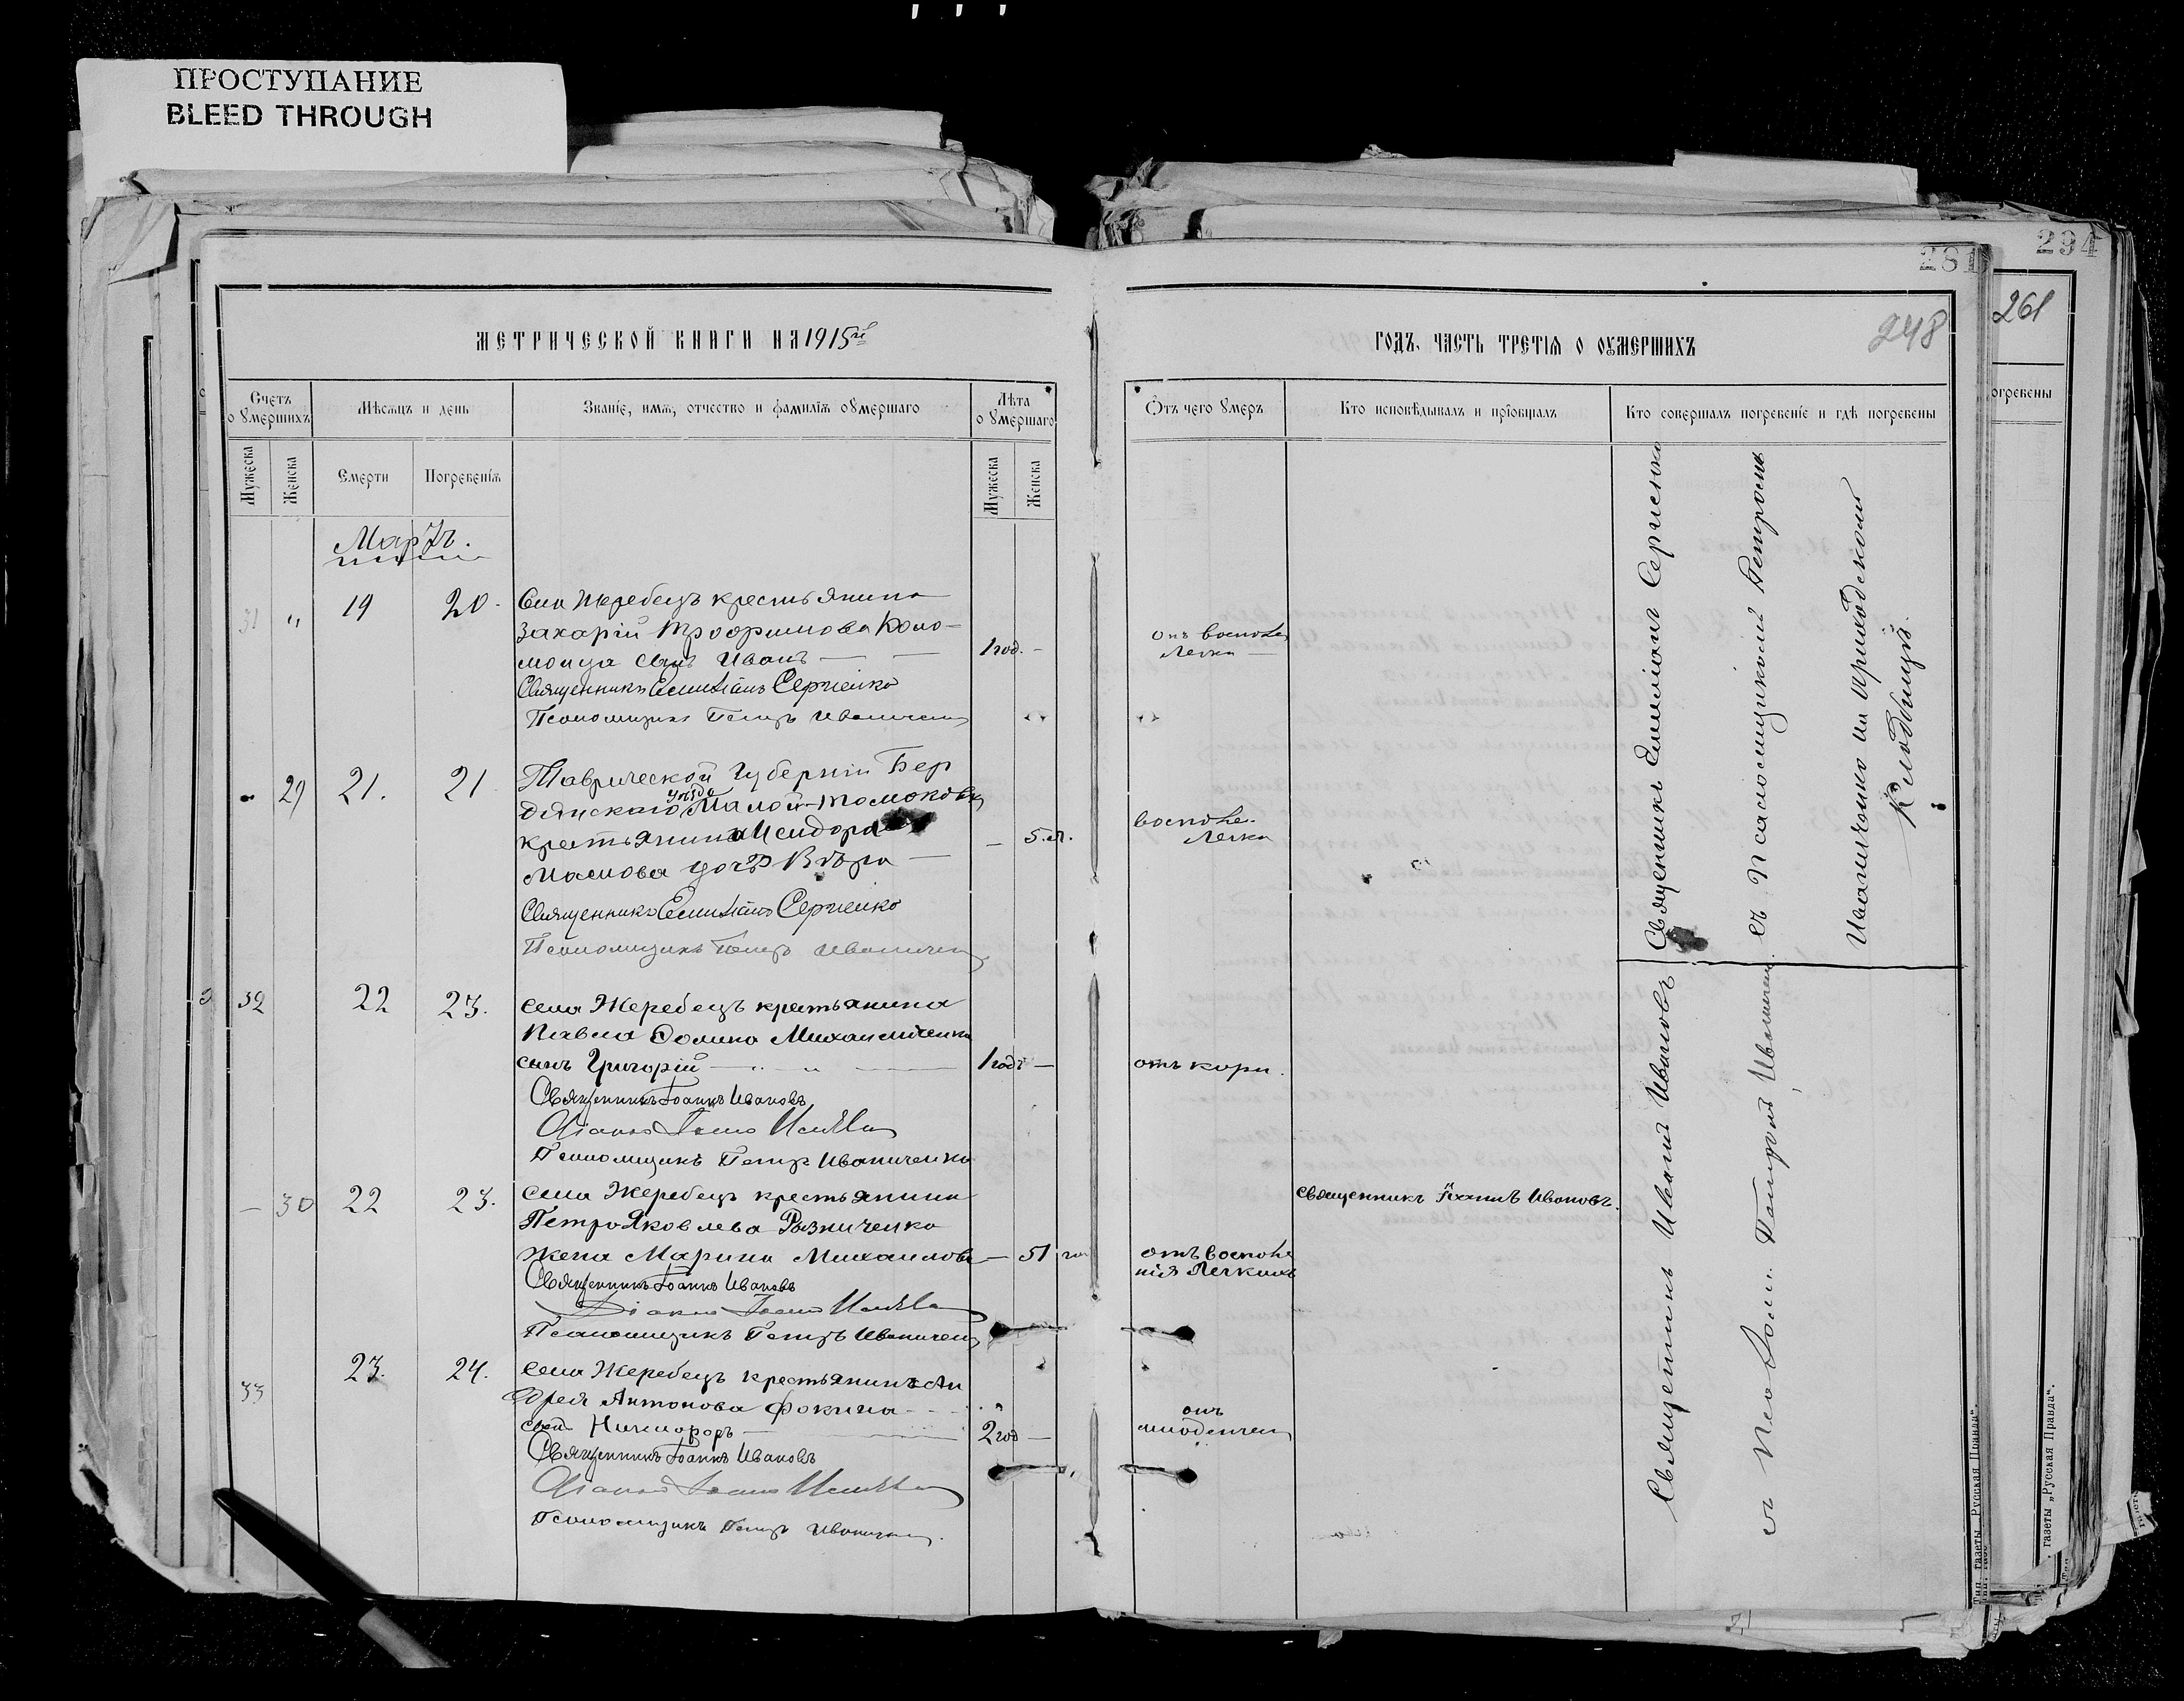 ПРОСТУПАНИЕ
BLEED THROUGH
281
294
261
248
МЕТРИЧЕСКОЙ КНИГИ НА 1915й
ГОДЪ, ЧАСТЬ ТРЕТІЯ О ОУМЕРШИХЪ
Счетъ о умершихъ
Мѣсяцъ и день
Званіе, имя, отчество и фамилія оумершаго
Лѣта о умершаго
Отъ чего умеръ
Кто исповѣдывалъ и пріобщалъ
Кто совершалъ погребеніе и гдѣ погребены
огребены
Мужеска
Женска
Смерти
Погребенія
Мужеска
Женска
Мартъ.
31 " 19 20.
Села Жеребецъ крестьянина
Захарій Трофимова Коло-
мойца сынъ Иванъ — —
1 год. -
отъ воспале
легки —
Священникъ Емиліанъ Сергіенко
Псаломщикъ Петръ Иваниченко
29 21. 21
Таврической Губерніи Бер
дянскаго уѣзда Малой-Токмаковки
крестьянина Исидора
Маслова дочь Вѣра —
— 5.л.
воспале.
легки
Священникъ Емиліанъ Сергіенко
Псаломщикъ Петръ Иваниченко
32 22 23.
села Жеребецъ крестьянина
Павла Фомина Михайличенка
сынъ Григорій
1 годъ —
отъ кори.
Священникъ Іоаннъ Ивановъ
Діаконъ
Псаломщикъ Петръ Иваниченко
— 30 22 23.
села Жеребецъ крестьянина
Петра Яковлева Рѣзниченко
жена Марина Михайлова
— 51 го
отъ воспале
нія Легкихъ
Священникъ Іоаннъ Ивановъ.
Священникъ Іоаннъ Ивановъ
Діаконъ
Псаломщикъ Петръ Иваниченко
33 23. 24.
села Жеребецъ крестьянина Ан
дрея Антонова Фокина
сынъ Никифоръ —
2 год —
отъ
младенчес
Священникъ Іоаннъ Ивановъ
Діаконъ
Псаломщикъ Петръ Иваниченко.
Священникъ Емиліанъ Сергіенко
съ Псаломщикомъ Петромъ
Иваниченко на приходскомъ
Кладбищѣ.
Священникъ Иоаннъ Ивановъ
съ Псалом. Петромъ Иваниченк.
Тип. газеты „Русская Правда“.
газеты „Русская Правда“.